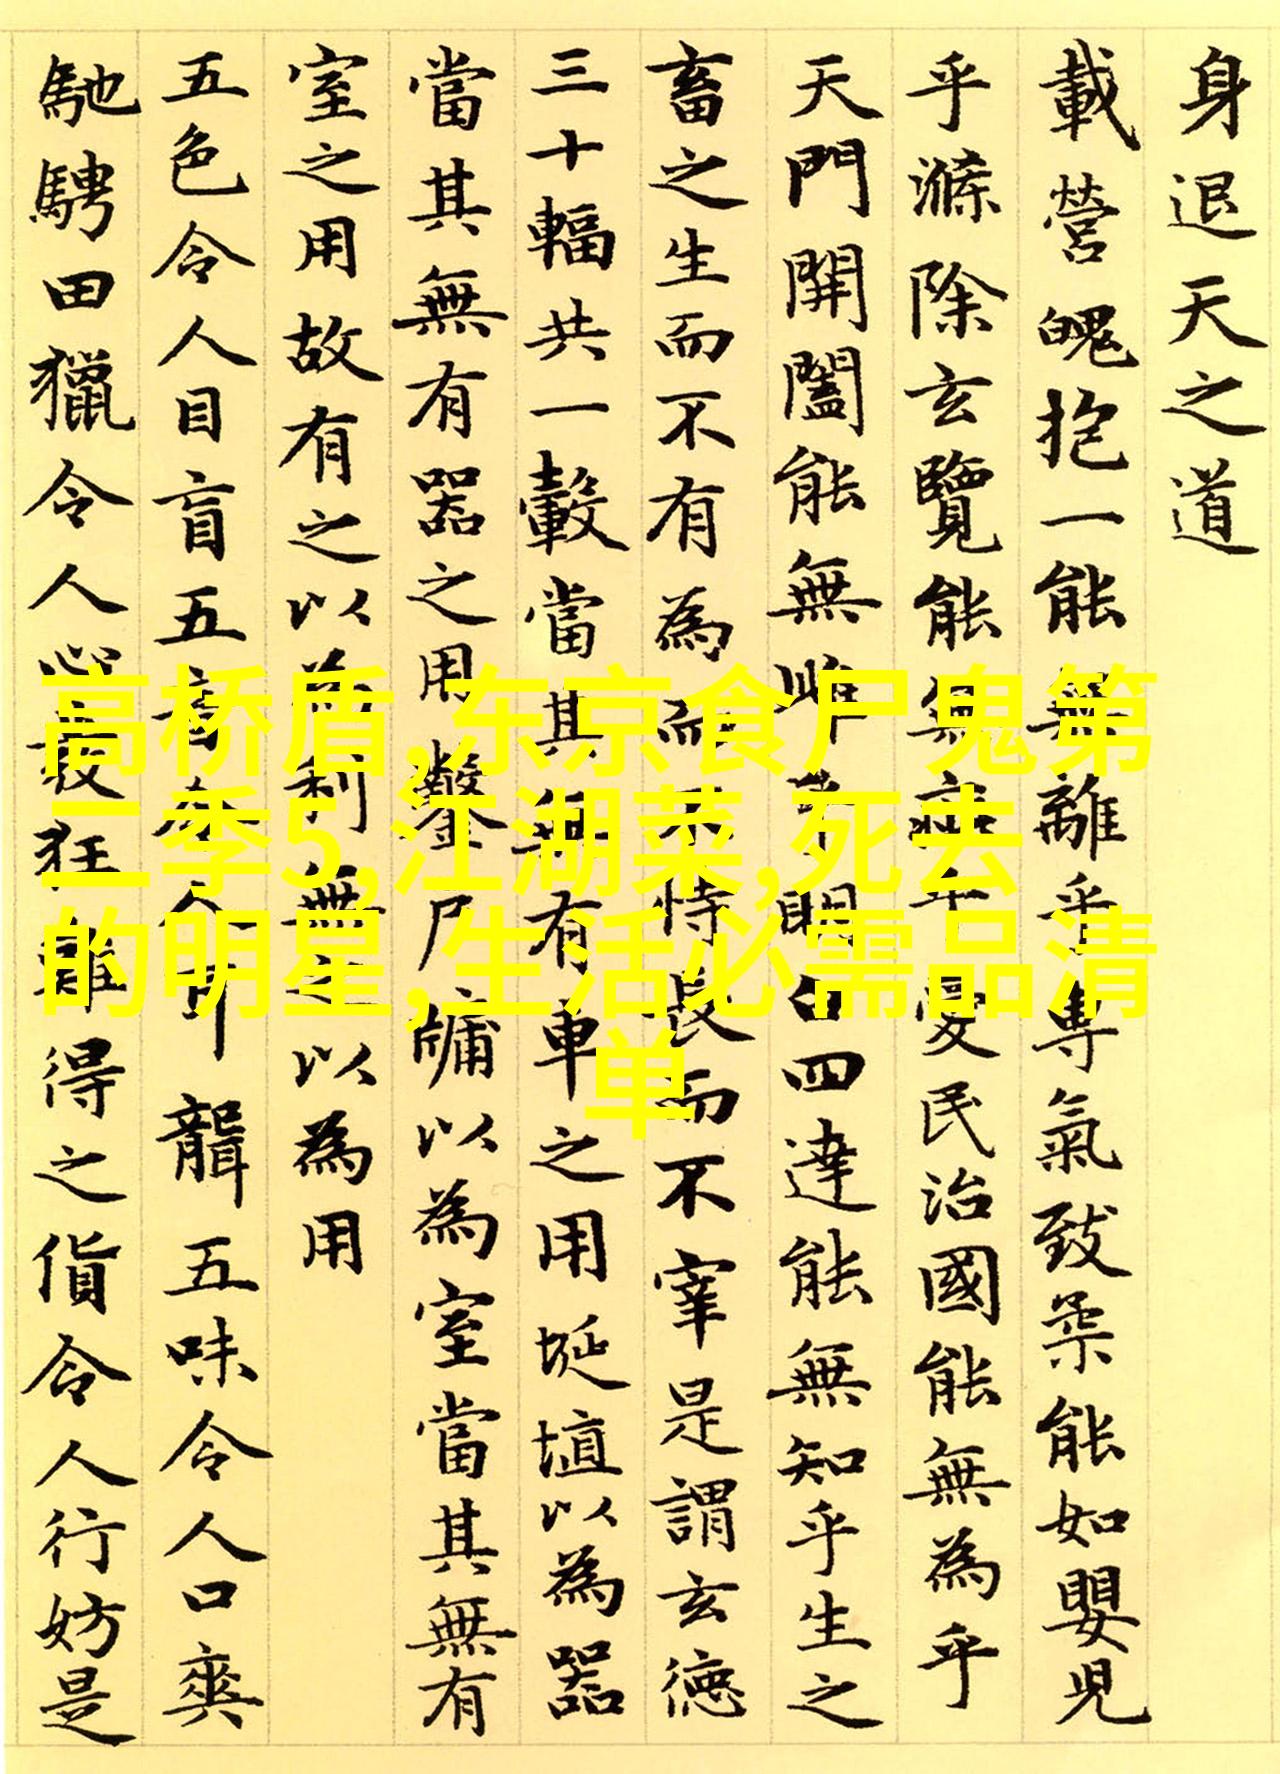 身退天之道
載營魄抱一能無離乎專氣致柔能如嬰兒
乎滌除玄覽能無疵乎愛民治國能無為乎
天門開闔能無雌乎明白四達能無知乎生之
畜之生而不有為而不恃長而不宰是謂玄德
三十輻共一轂當其無有車之用埏埴以為器
當其無有器之用鑿戶牖以為室當其無有
室之用故有之以為利無之以為用
五色令人目盲五音令人耳聾五味令人口爽
馳騁田獵令人心發狂難得之貨令人行妨是
高桥盾,东京食尸鬼第
二季5,江湖菜,死去
的明星,生活必需品清
单